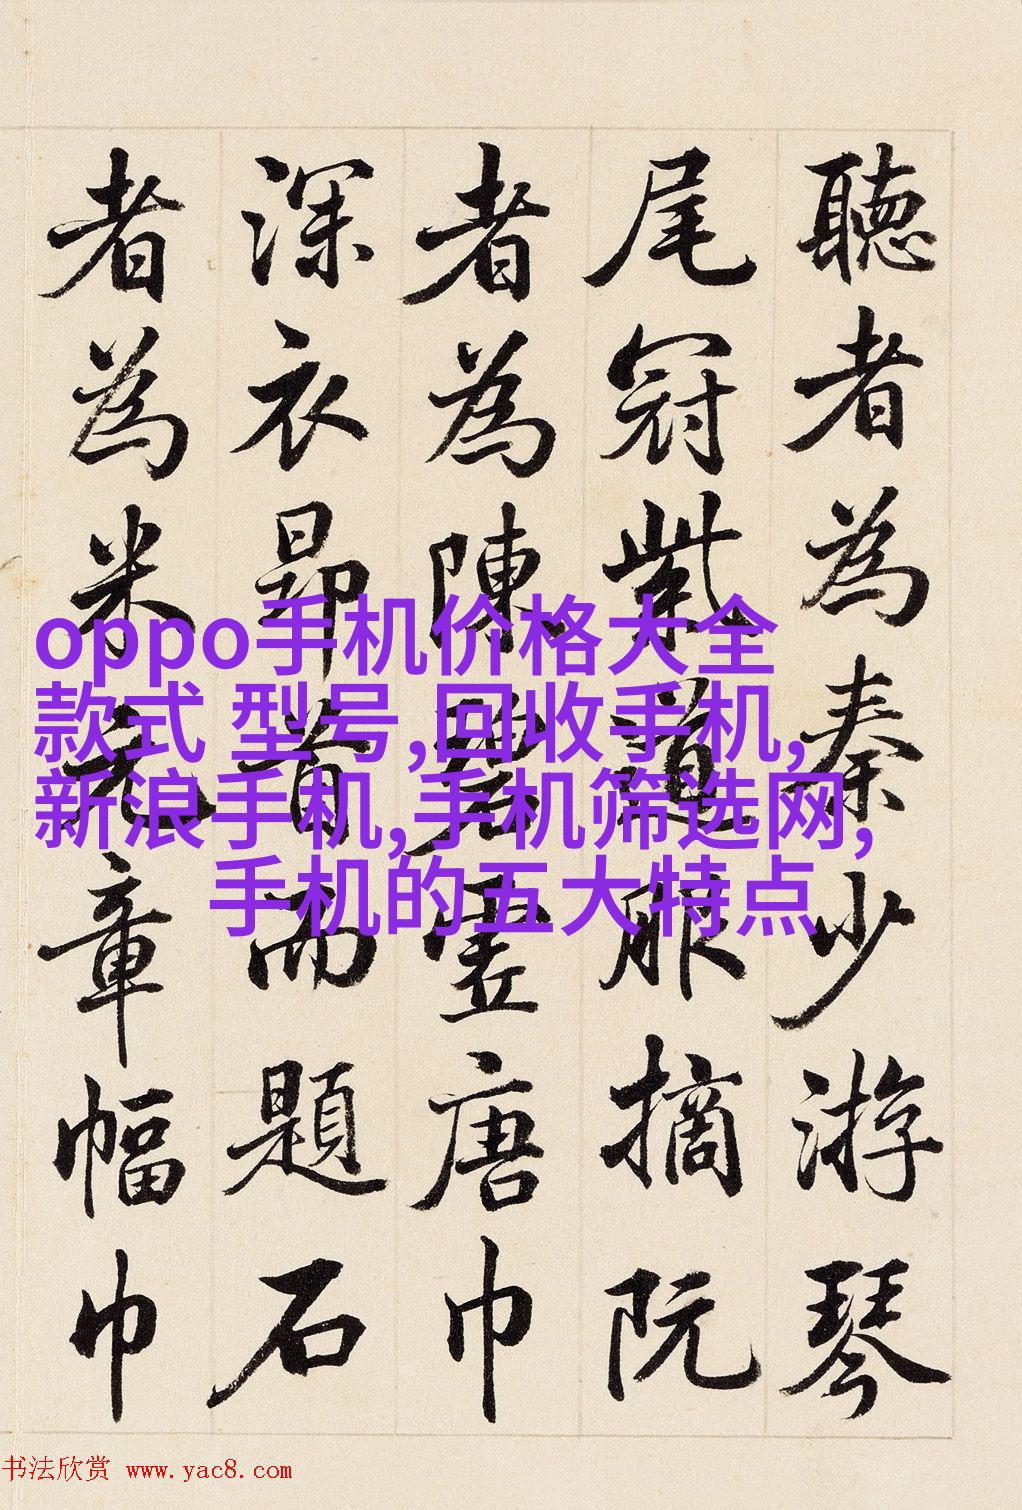 聽者為秦少游琴
尾冠紫道服摘阮
者為陳碧虛唐巾
深衣昂首而題石
者為米元章幅巾
oppo手机价格大全
款式 型号,回收手机,
新浪手机,手机筛选网,
手机的五大特点
书法欣赏 www.yac8.com